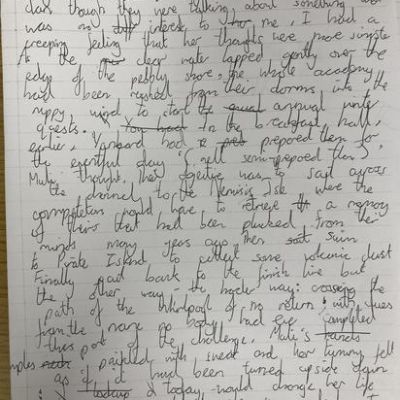 though they were talking about something
was no interest to me, I had a
creeping feeling that her thoughts were more simple
to the clear water lapped gently over the
edge of the pebbly shore, the whole academy
had been rushed from their dorms, into the
nippy wind to start the annual
quests. In the breakfast hall,
earlier, had prepared them for
the eventful day (well semi-prepared them).
thought. They together was to sail across
the to the Nemisis Isle were the
competitors would have to retrieve a memory
of theirs that had been plucked from their
minds many years ago, then swim
to Pirate Island to collect some volcanic dust
Finally back to the finish line but
the other way - the harder way: crossing the
path of the whirlpool of no return; with
from the name no body had ever completed
this part of the challenge. hands
prickled with sweat and her tummy felt
as if it had been turned upside down
today would change her life